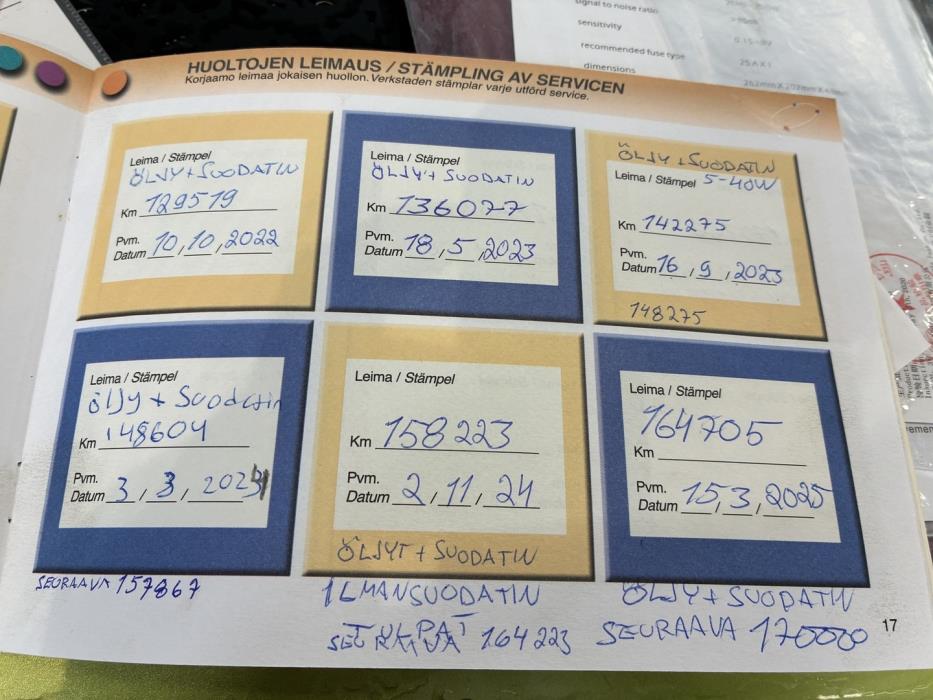 signal to noise ratio
sensitivity
recommended fuse type
dimensions
25A X 1
HUOLTOJEN LEIMAUS / STÄMPLING AV SERVICEN
Korjaamo leimaa jokaisen huollon. Verkstaden stämplar varje utförd service.
Leima / Stämpel
ÖLJY+SUODATIN
Km 129519
Pvm.
Datum 10,10,2022
Leima / Stämpel
ÖLJY+SUODATIN
Km 136077
Pvm.
Datum 18,5,2023
ÖLJY+SUODATIN
Leima / Stämpel 5-40W
Km 142275
Pvm.
Datum 16,9,2023
148275
Leima / Stämpel
Öljy + Suodatin
Km 148604
Pvm.
Datum 3,3,2024
SEURAAVA
Leima / Stämpel
Km 158223
Pvm.
Datum 2,11,24
ÖLJYT+SUODATIN
ILMANSUODATIN
TULPAT
SEURAAVA 164223
Leima / Stämpel
164705
Km
Pvm.
Datum 15,3,2025
ÖLJY+SUODATIN
SEURAAVA 170000
17